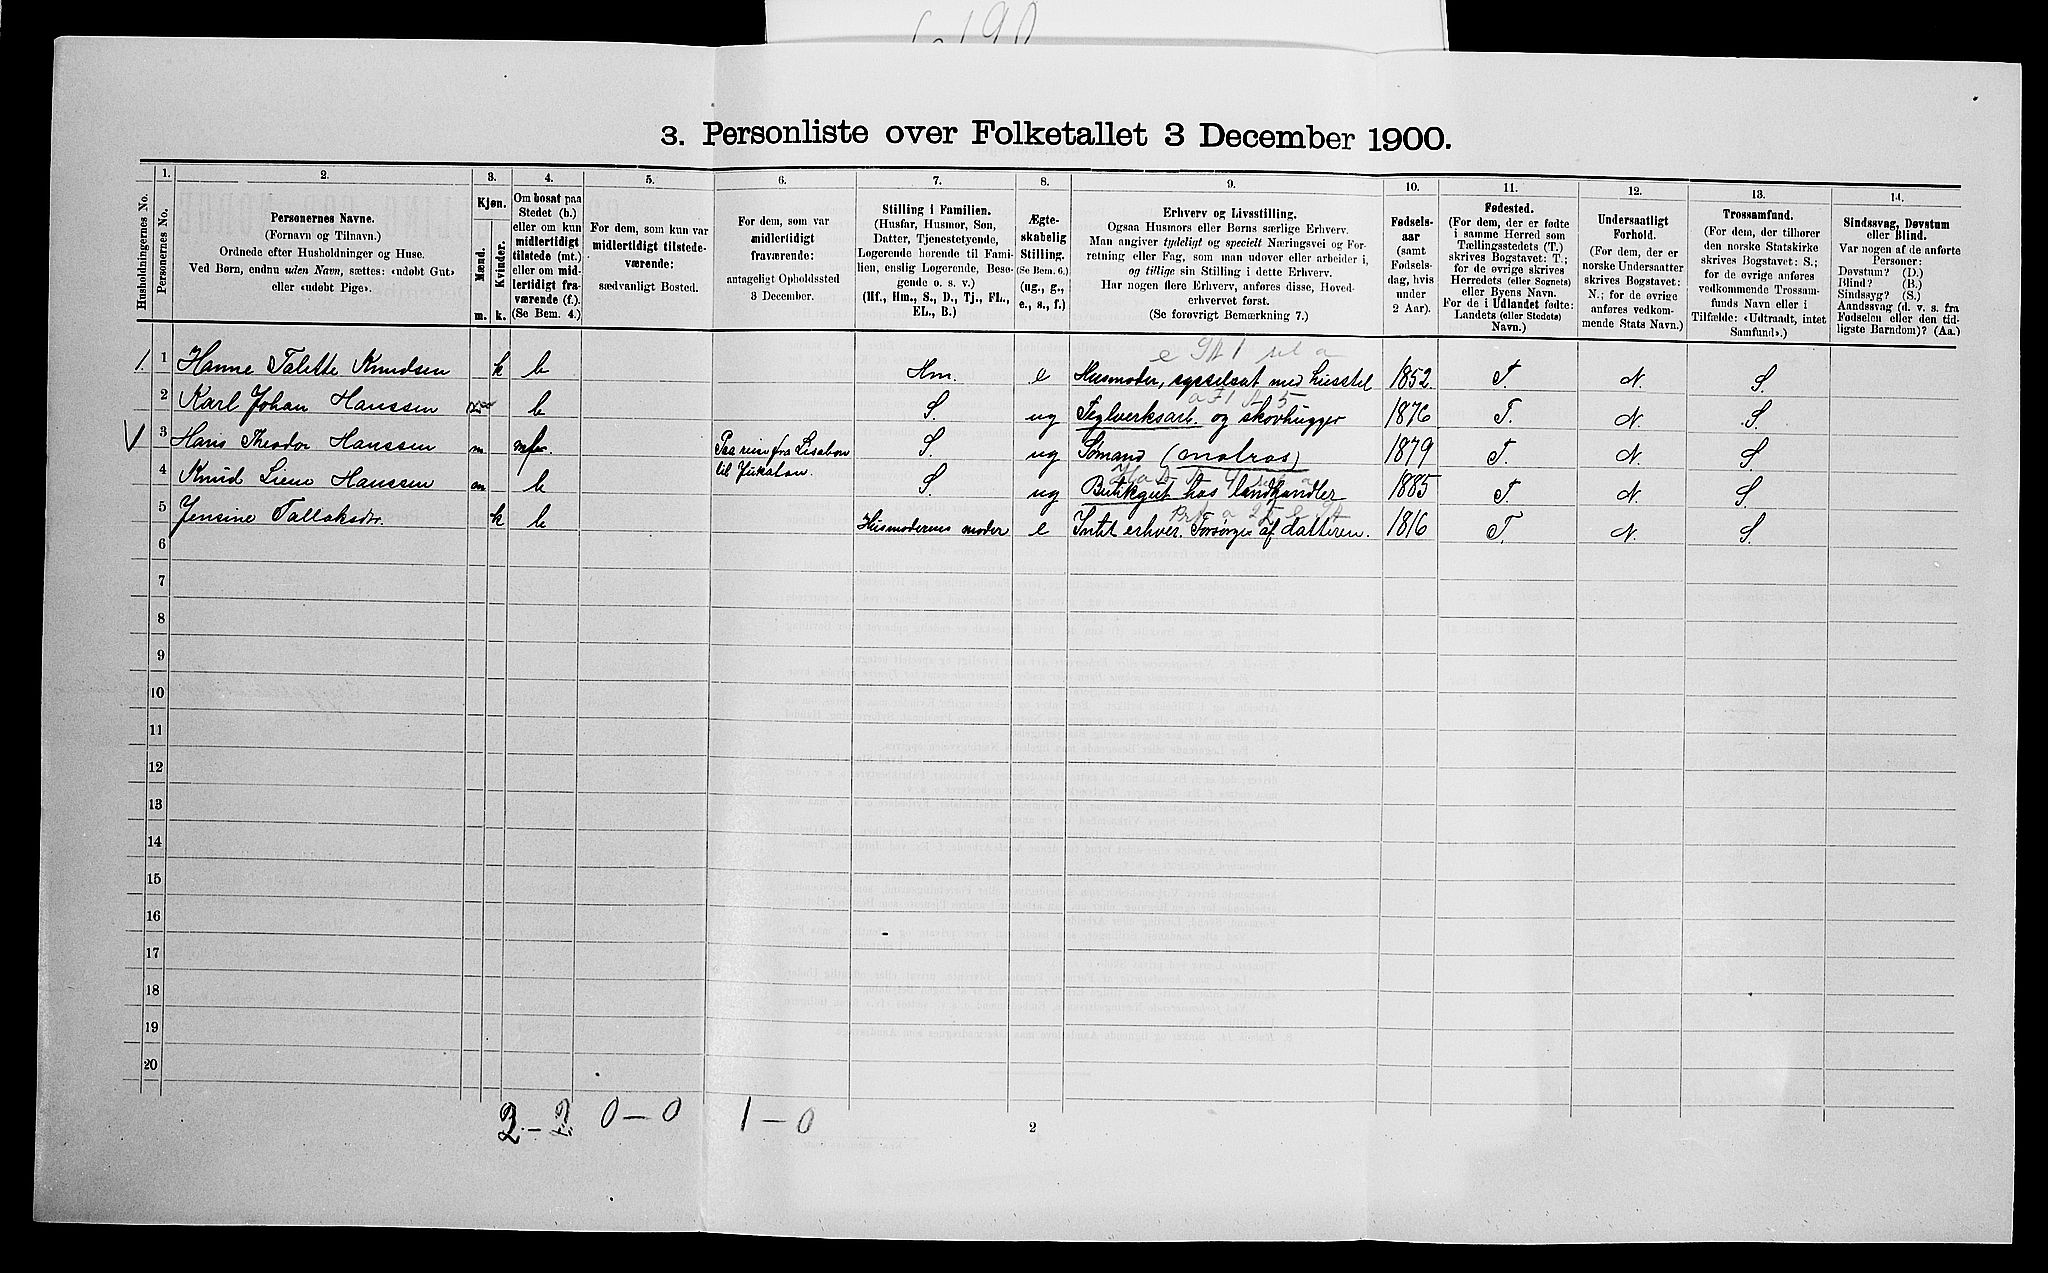 3. Personliste over Folketallet 3 December 1900.
Husholdningernes No.
1.
Personernes No.
2.
Personernes Navne.
(Fornavn og Tilnavn.)
Ordnede efter Husholdninger og Huse.
Ved Børn, endnu uden Navn, sættes: «udøbt Gut»
eller «udøbt Pige».
3.
Kjøn.
Mænd.
Kvinder.
m.
k.
4.
Om bosat paa
Stedet (b.)
eller om kun
midlertidigt
tilstede (mt.)
eller om mid-
lertidigt fra-
værende (f.).
(Se Bem. 4.)
5.
For dem, som kun var
midlertidigt tilstede-
værende:
sædvanligt Bosted.
6.
For dem, som var
midlertidigt
fraværende:
antageligt Opholdssted
3 December.
7.
Stilling i Familien.
(Husfar, Husmor, Søn,
Datter, Tjenestetyende,
Logerende hørende til Fami-
lien, enslig Logerende, Besø-
gende o. s. v.)
(Hf., Hm., S., D., Tj., FL.,
EL., B.)
8.
Ægte-
skabelig
Stilling.
(Se Bem. 6.)
(ug., g.,
e., s., f.)
9.
Erhverv og Livsstilling.
Ogsaa Husmors eller Børns særlige Erhverv.
Man angiver tydeligt og specielt Næringsvei og For-
retning eller Fag, som man udøver eller arbeider i,
og tillige sin Stilling i dette Erhverv.
Har nogen flere Erhverv, anføres disse, Hoved-
erhvervet først.
(Se forøvrigt Bemærkning 7.)
10.
Fødsels-
aar
(samt
Fødsels-
dag, hvis
under
2 Aar).
11.
Fødested.
(For dem, der er fødte
i samme Herred som
Tællingsstedets (T.)
skrives Bogstavet: T.;
for de øvrige skrives
Herredets (eller Sognets)
eller Byens Navn.
For de i Udlandet fødte:
Landets (eller Stedets)
Navn.)
12.
Undersaatligt
Forhold.
(For dem, der er
norske Undersaatter
skrives Bogstavet:
N.; for de øvrige
anføres vedkom-
mende Stats Navn.)
13.
Trossamfund.
(For dem, der tilhører
den norske Statskirke
skrives Bogstavet: S.;
for de øvrige anføres
vedkommende Trossam-
funds Navn eller i
Tilfælde: «Udtraadt, intet
Samfund».)
14.
Sindssvag, Døvstum
eller Blind.
Var nogen af de anførte
Personer:
Døvstum? (D.)
Blind? (B.)
Sindssyg? (S.)
Aandssvag (d. v. s. fra
Fødselen eller den tid-
ligste Barndom)? (Aa.)
1. 1 Hanne Talette Knudsen k b Hm. e Husmoder, sysselsat med husstel 1852. T. N. S.
2 Karl Johan Hanssen b S. ug Teglverksarb. og skovhugger 1876 T. N. S.
3 Hans Theodor Hanssen m Paa reise fra Lisabon
til Jukatan. S. ug Sømand (matros) 1879 T. N. S.
4 Knud Liene Hanssen m b S. ug Butikgut hos landhandler 1885 T. N. S.
5 Jensine Tallaksdtr. k b Husmoderens moder e Intet erhver. Forsørges af datteren. 1816 T. N. S.
6
7
8
9
10
11
12
13
14
15
16
17
18
19
20
2 - 2 0 - 0 1 - 0
2